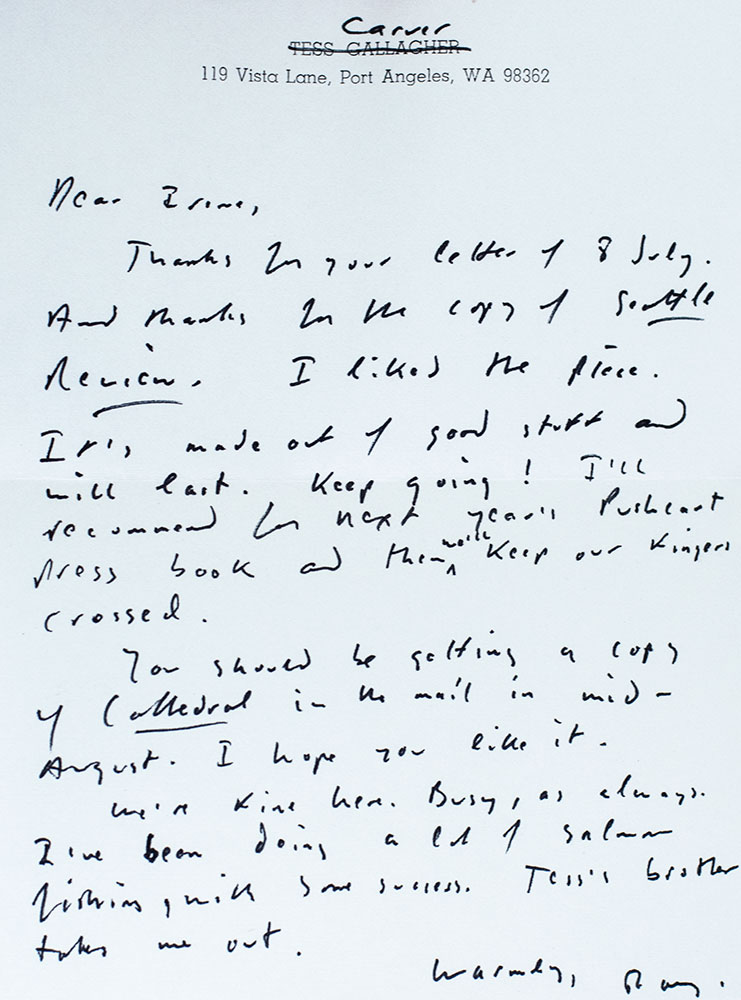 Carver
TESS GALLAGHER
119 Vista Lane, Port Angeles, WA 98362
Dear Irene,
Thanks for your letter of 8 July.
And thanks for the copy of Seattle
Review. I liked the piece.
It's made out of good stuff and
will last. Keep going! I'll
recommend for next year's Pushcart
Press book and then we'll keep our fingers
crossed.
You should be getting a copy
of Cathedral in the mail in mid-
August. I hope you like it.
We're fine here. Busy, as always.
I've been doing a lot of salmon
fishing, with some success. Tess's brother
takes me out.
Warmly, Ray.